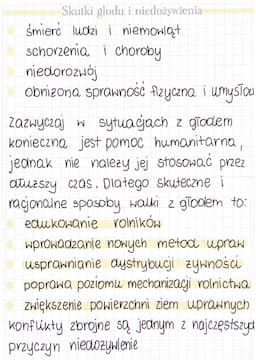 Skutki głodu i niedożywienia
śmierć ludzi i niemowląt
schorzenia i choroby
niedorozwój
obniżona sprawność fizyczna i umysłow
zazwyczaj w sytuacjach z głodem
konieczna jest pomoc humanitarna,
jednak nie należy jej stosować przez
dłuższy czas. Dlatego skuteczne i
racjonalne sposoby walki z głodem to:
edukowanie rolników
wprowadzanie nowych metod upraw
usprawnianie dystrybucji żywności
poprawa poziomu mechanizacji rolnictwa
zwiększenie powierzchni ziem uprawnych
konflikty zbrojne są jednym z najczęstszyc
przyczyn niedożywienie